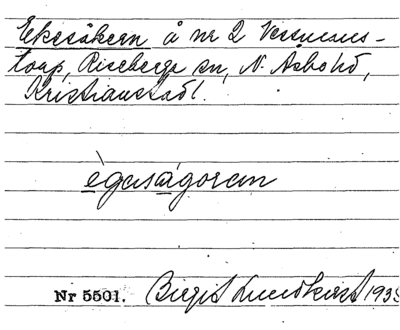 Ekesåkern å nr 2 Vesmans-
torp, Riseberga sn, N. Åsbo hd,
Kristianstad l.
ègasågoran
Nr 5501. Birgit Lundkvist 1935